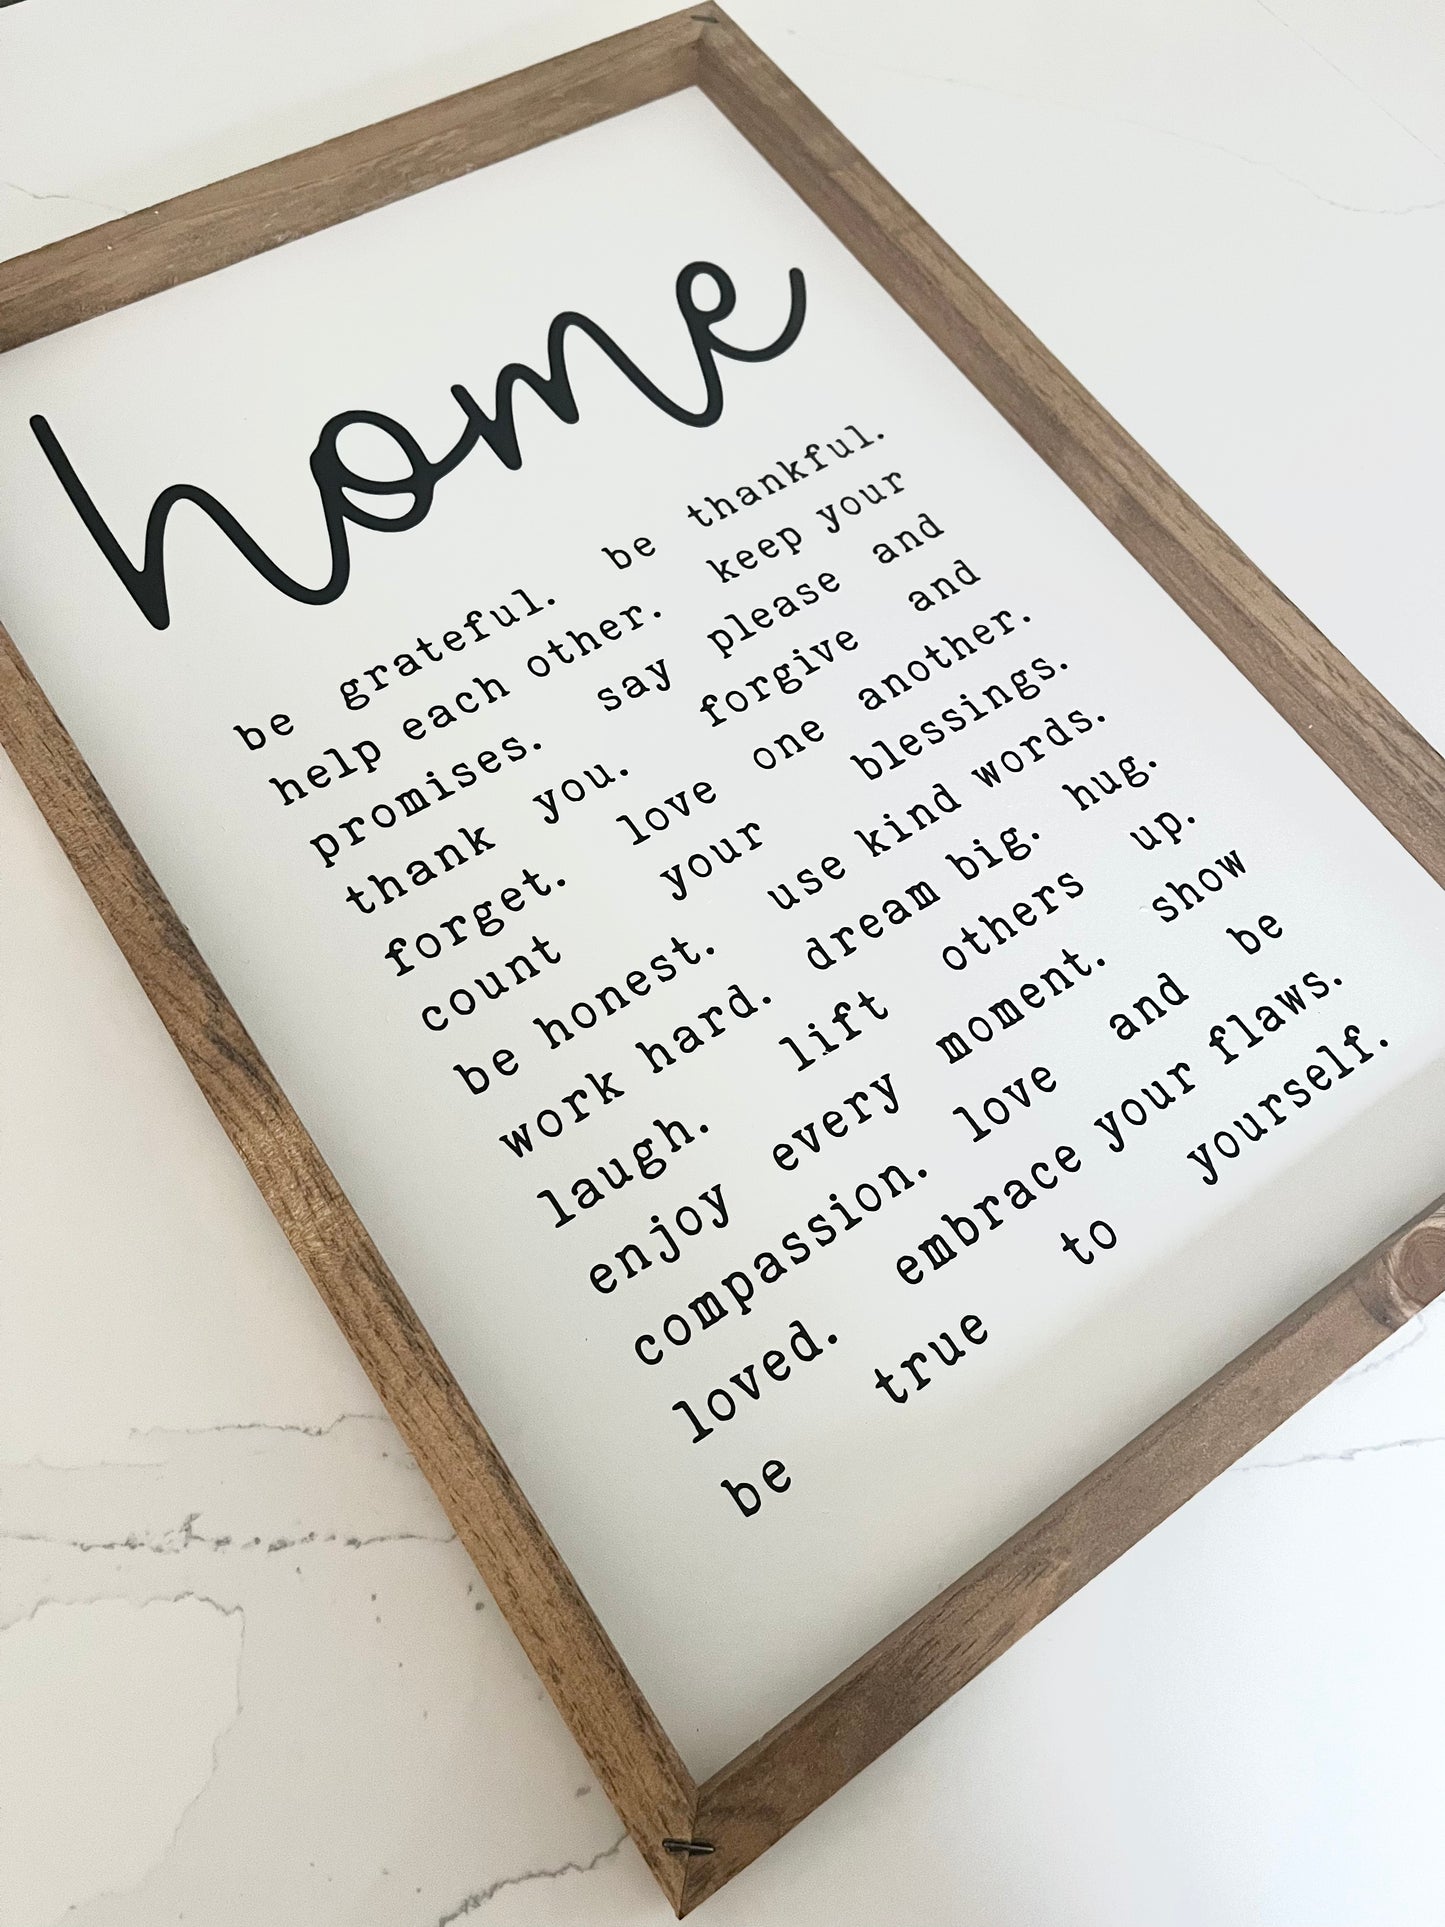 home
be grateful. be thankful.
help each other. keep your
promises. say please and
thank you. forgive and
forget. love one another.
count your blessings.
be honest. use kind words.
work hard. dream big. hug.
laugh. lift others up.
enjoy every moment. show
compassion. love and be
loved. embrace your flaws.
be true to yourself.